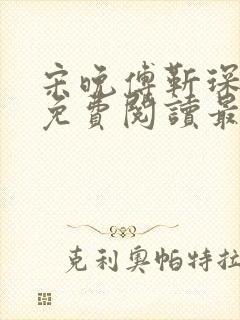 宋晚傅靳琛
免費閱讀最
克利奧帕特拉